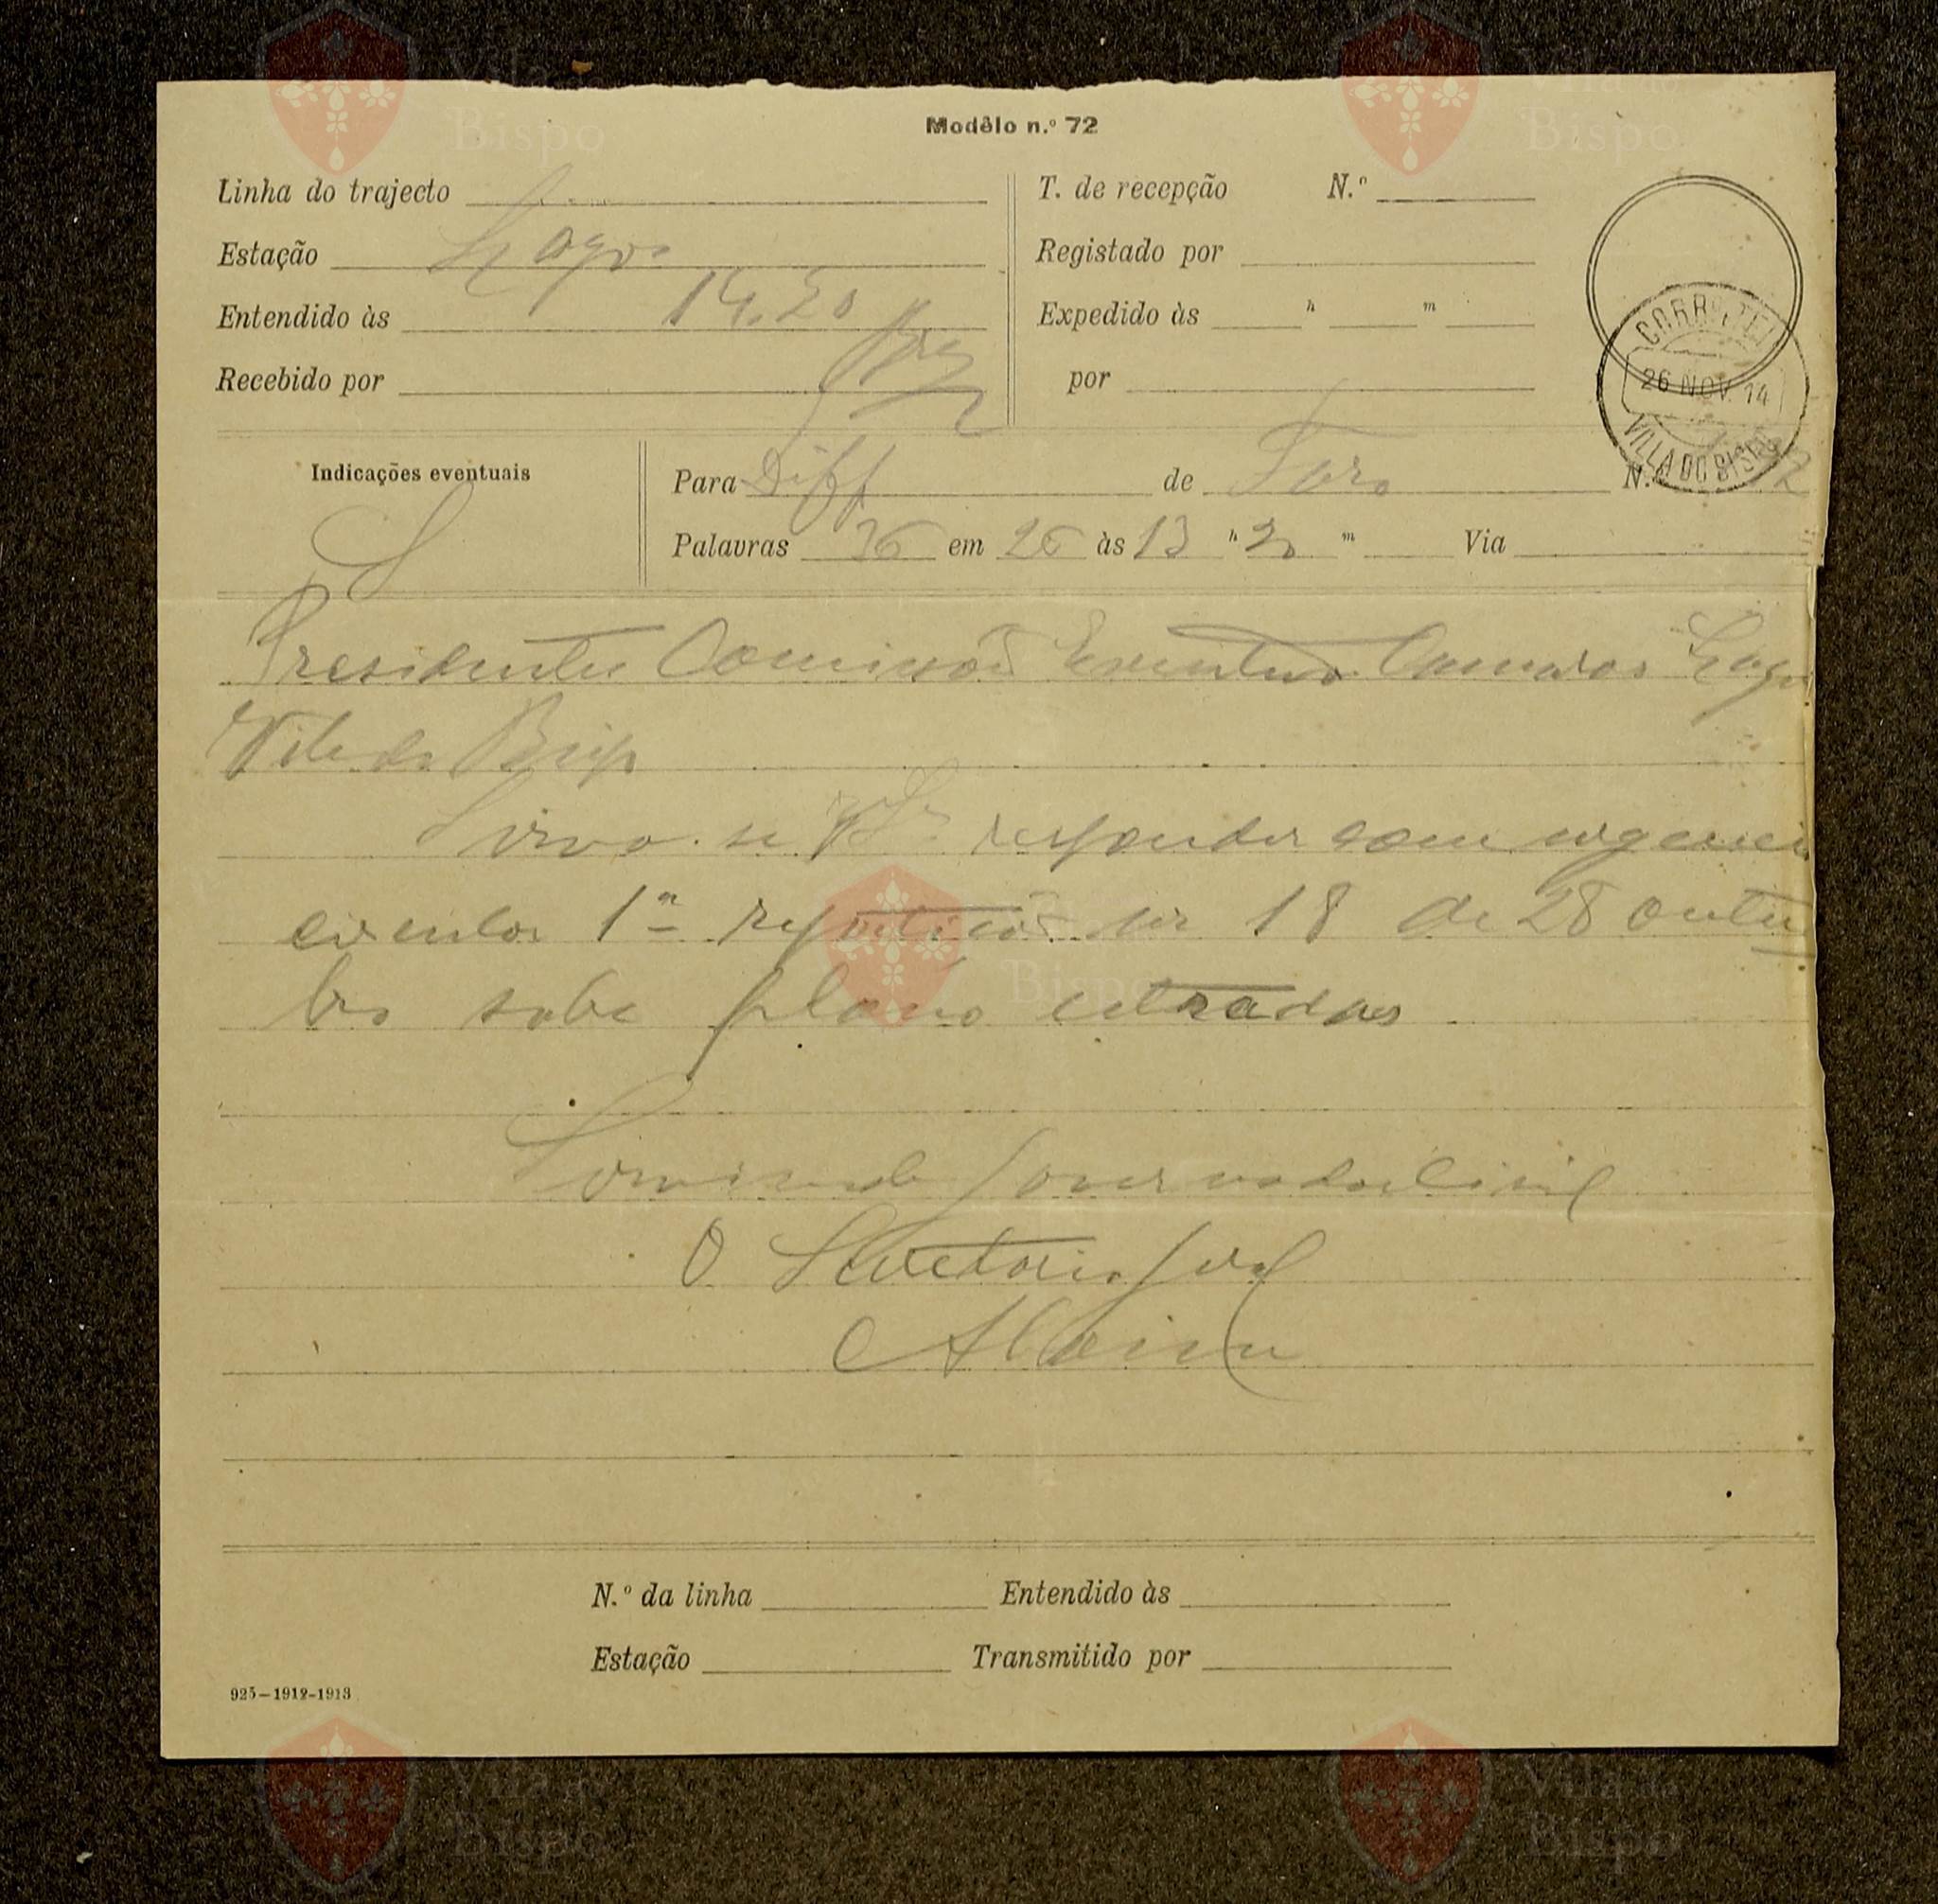 Modêlo n.º 72
Linha do trajecto
T. de recepção N.º
Estação Lagos
Registado por
Entendido às 14.50
Expedido às h m
Recebido por
por
CORR. TEL.
26 NOV. 14
VILLA DO BISPO
Indicações eventuais
S
Para Diff de Faro N.º
Palavras 36 em 26 às 13 h 20 m Via
Presidentes Comissões Executivas Camaras Lagos
Vila do Bispo
Sirva-se V. responder com urgencia
circular 1ª repartição nr 18 de 28 outu
bro sobre plano estradas
Servindo Governador Civil
O Secretario Geral
N.º da linha Entendido às
Estação Transmitido por
925-1912-1913
Vila do Bispo